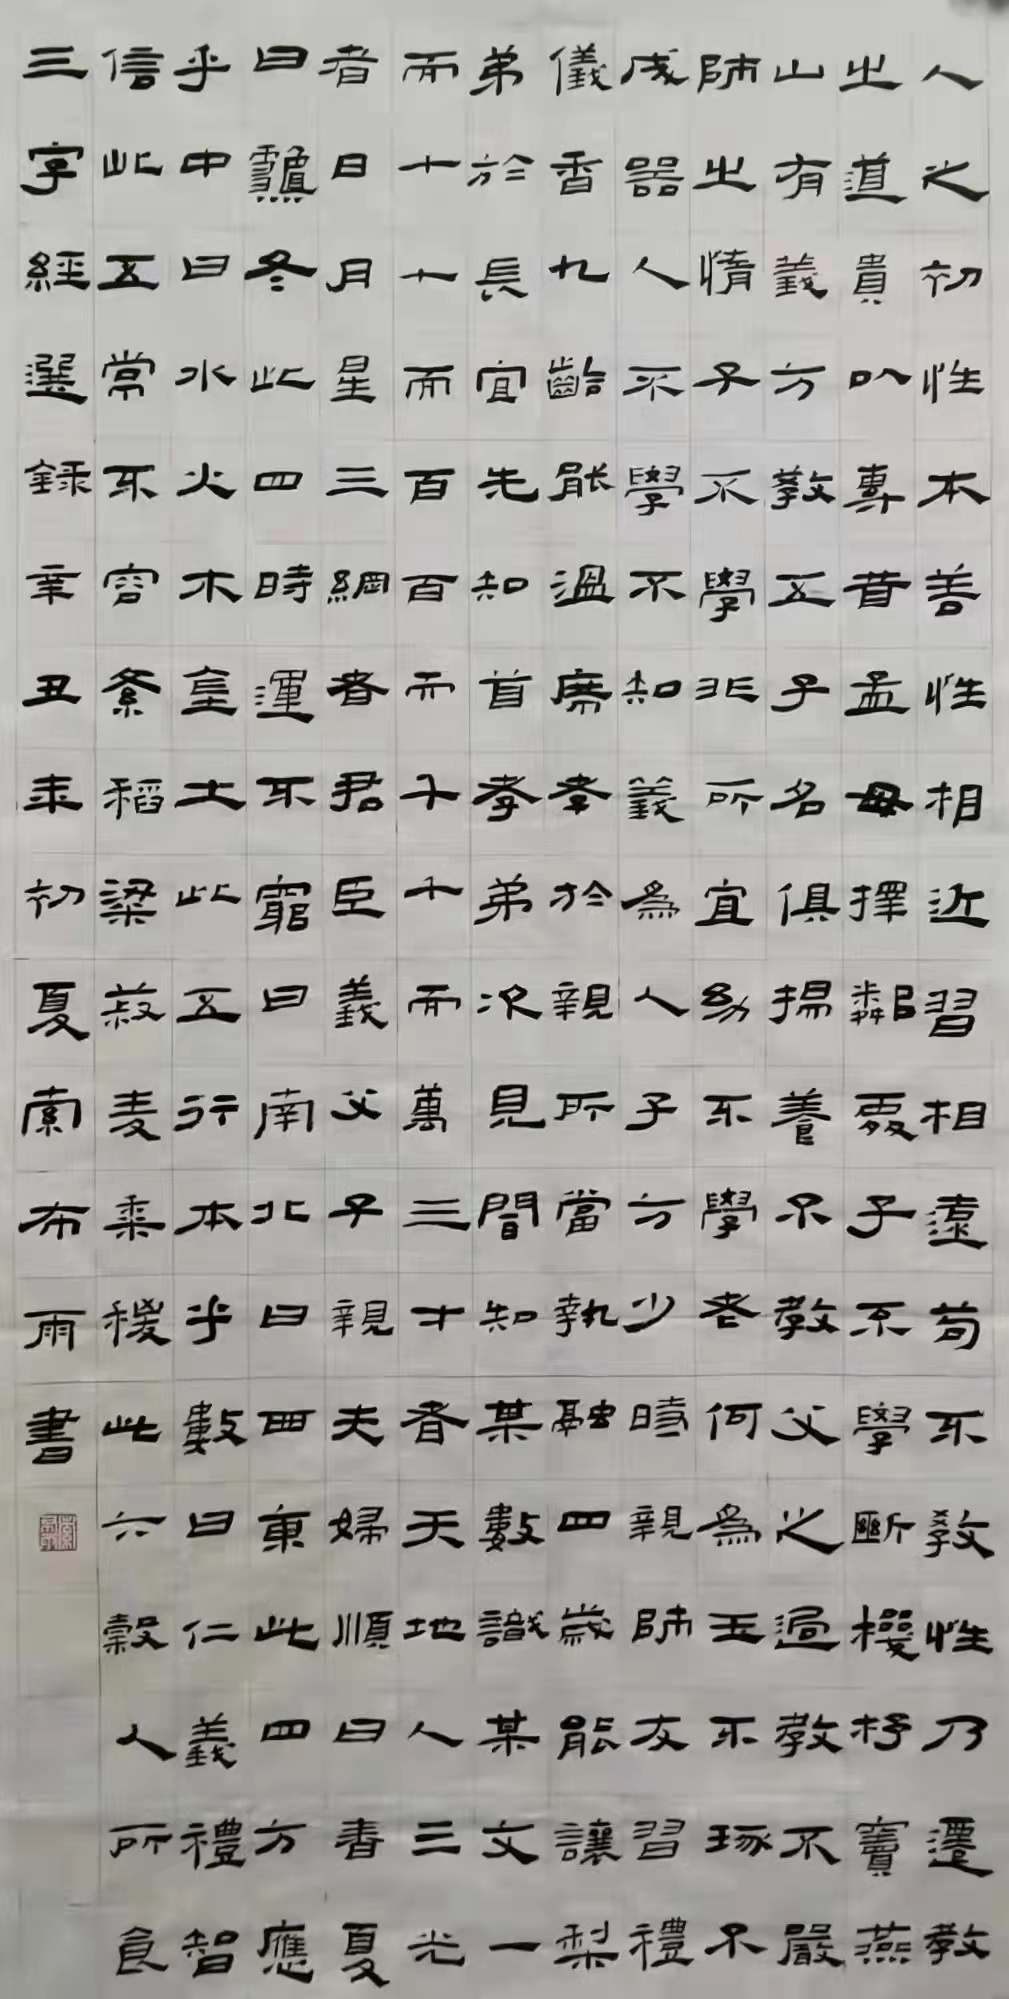 人之初性本善性相近習相遠苟不教性乃遷教
之道貴以專昔孟母擇鄰處子不學斷機杼竇燕
山有義方教五子名俱揚養不教父之過教不嚴
師之惰子不學非所宜幼不學老何為玉不琢不
成器人不學不知義為人子方少時親師友習禮
儀香九齡能溫席孝於親所當執融四歲能讓梨
弟於長宜先知首孝弟次見間知某數識某文一
而十十而百百而千千而萬三才者天地人三光
者日月星三綱者君臣義父子親夫婦順曰春夏
曰秋冬此四時運不窮曰南北曰西東此四方應
乎中曰水火木金土此五行本乎數曰仁義禮智
信此五常不容紊稻粱菽麥黍稷此六穀人所食
三字經選錄辛丑年初夏索布雨書